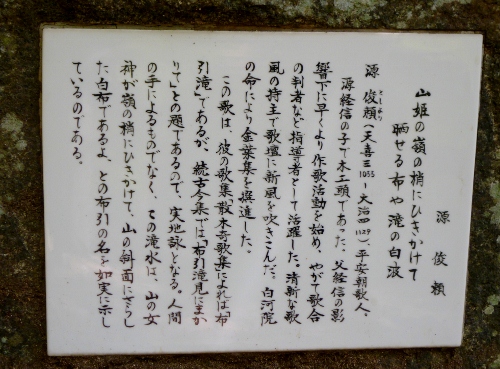 山姫の嶺の梢にひきかけて
晒せる布や滝の白波
源 俊頼
源 俊頼(天喜三1055ー大治四1129)、平安朝歌人、
としより
源経信の子で木工頭であった。父経信の影
響下に早くより作歌活動を始め、やがて歌合
の判者など指導者として活躍した。清新な歌
風の持主で歌壇に新風を吹きこんだ。白河院
の命により金葉集を撰進した。
この歌は、彼の歌集「散木奇歌集」によれば「布
引滝」であるが、続古今集では「布引滝見にまか
りて」との題であるので、実地詠となる。人間
の手によるものでなく、この滝水は、山の女
神が嶺の梢にひきかけて、山の斜面にさらし
た白布であるよ、との布引の名を如実に示し
ているのである。